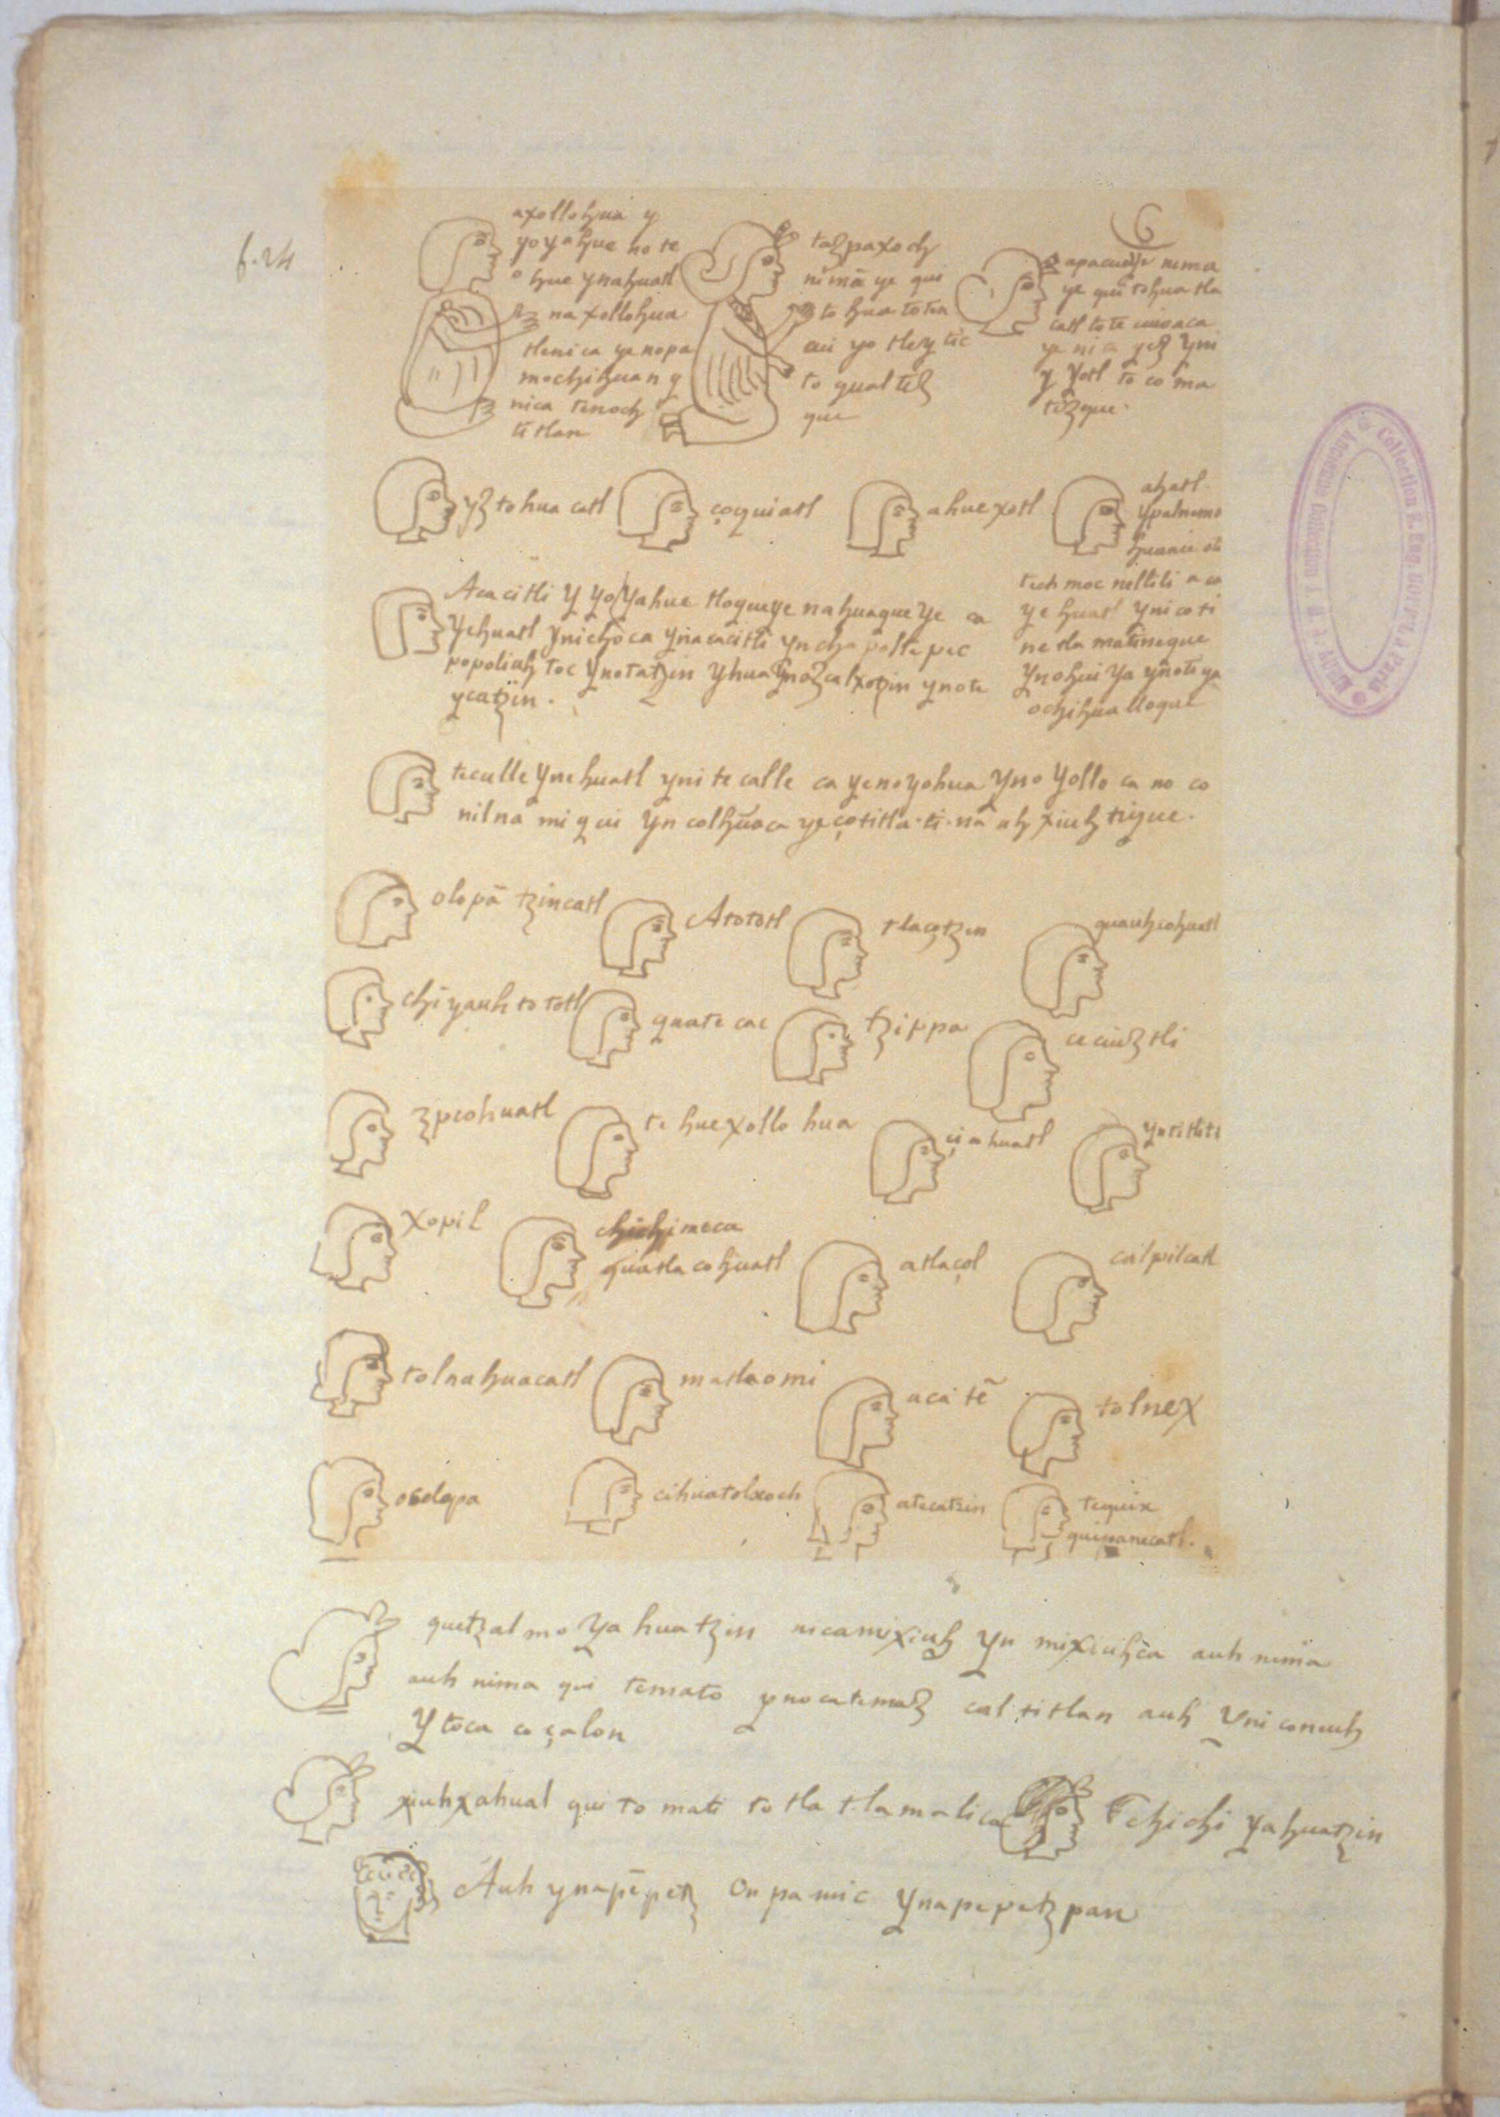 f. 24
6
axollohua y
yoyahue no te
o hue ynahuatl
naxollohua
tlenica ye nopa
mochihuan y
nica tenoch
titlan
tozpaxoch
nimā ye qui
to hua toten
to qualtiz
que
apacueye nima
ye qui tohua tla
catl tote
tizque.
yztohuacatl
çoquiatl
ahuexotl
ahatl
ypalnemo
huani
Acacitli y yoyahue tloqueye nahuaque ye ca
yehuatl ynichoca ynacacitli yn chapoltepec
popoliuh toc ynotatzin yhua ynozcalxotzin ynote
ycatzin.
tech moc neltili a ca
ye huatl ynicoti
netla matineque
ynohui ya ynote ya
ochihualloque
teculle ynehuatl yni te calle ca yenoyohua yno yollo ca no co
nilna miqui yn colhuaca ye çotitla. ti. nā
olopā tzincatl
Atototl
tlaçotzin
quauhcohuatl
chiyauh tototl
quatecac
tzippa
cecuiztli
zpcohuatl
te huexollo hua
çiahuatl
xopil
chichimeca
quatlacohuatl
atlaçol
calpilcatl
tolnahuacatl
matlaomi
acitē
tolnex
ocelopa
cihuatolxoch
atecatzin
tequix
quiuanecatl.
quetzalmoyahuatzin nicamixiuh yn mixiuhca auh nima
auh nima qui temato ynocatemaz caltitlan auh yniconeuh
ytoca coçalon
xiuhxahual qui to mati to tla tlamalica
Tchichi yahuatzin
Auh ynapēpetz Onpa mic ynapepetzpan
Collection E. Eug. GOUPIL à Paris
Ancienne Collection J. M. A. AUBIN